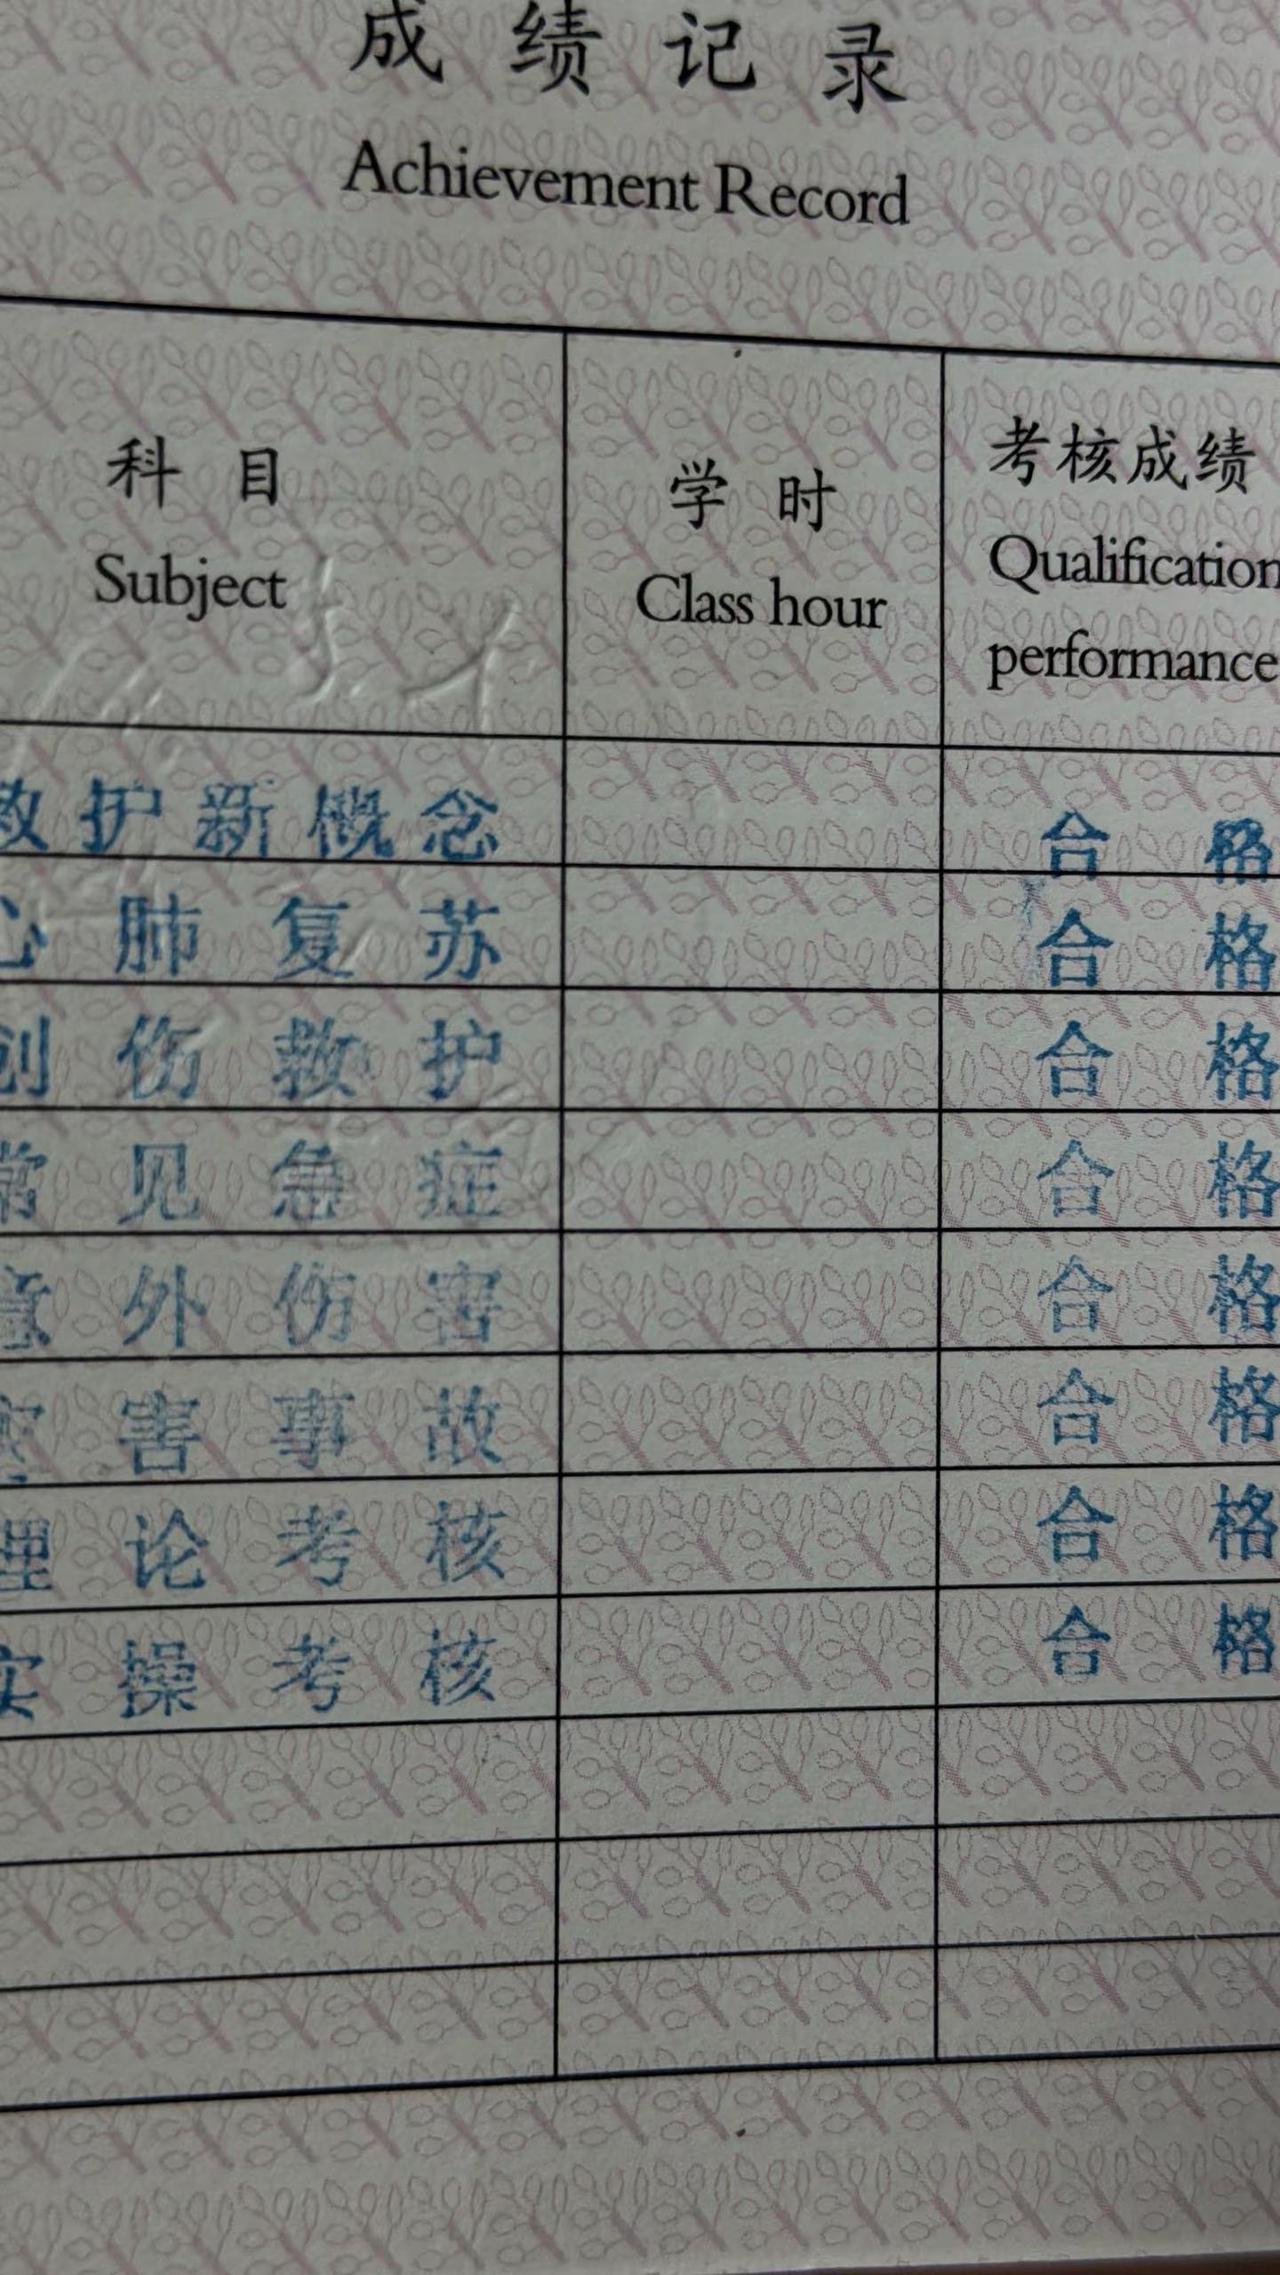 成绩记录
Achievement Record
科目
Subject
学时
Class hour
考核成绩
Qualification
performance
救护新概念 合格
心肺复苏 合格
创伤救护 合格
常见急症 合格
意外伤害 合格
灾害事故 合格
理论考核 合格
实操考核 合格